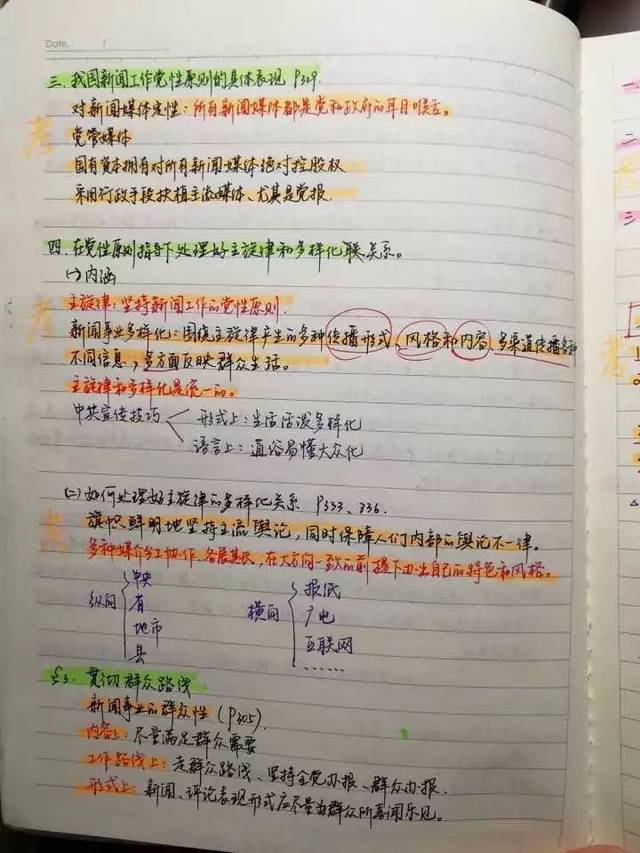 Date. /
三. 我国新闻工作党性原则的具体表现 P329.
对新闻媒体定性：所有新闻媒体都是党和政府的耳目喉舌。
考
党管媒体
国有资本拥有对所有新闻媒体绝对控股权
采用行政手段扶植主流媒体、尤其是党报.
四. 在党性原则指导下处理好主旋律和多样化联关系。
(一) 内涵
主旋律：坚持新闻工作的党性原则.
考
新闻事业多样化：围绕主旋律产生的多种传播形式、风格和内容、多渠道传播各种
不同信息，多方面反映群众生活。
主旋律和多样化是统一的。
中共宣传技巧 形式上：生活活泼多样化
语言上：通俗易懂大众化
(二) 如何处理好主旋律的多样化关系 P333、336.
旗帜鲜明地坚持主流舆论，同时保障人们内部的舆论不一律。
考
多种媒介分工协作、各展其长，在大方向一致的前提下办出自己的特色和风格。
纵向 中央 省 地市 县
横向 报纸 广电 互联网 ......
§3. 贯彻群众路线
新闻事业的群众性 (P305).
内容上：尽量满足群众需要
工作路线上：走群众路线、坚持全党办报、群众办报.
形式上：新闻、评论表现形式应尽量为群众所喜闻乐见。